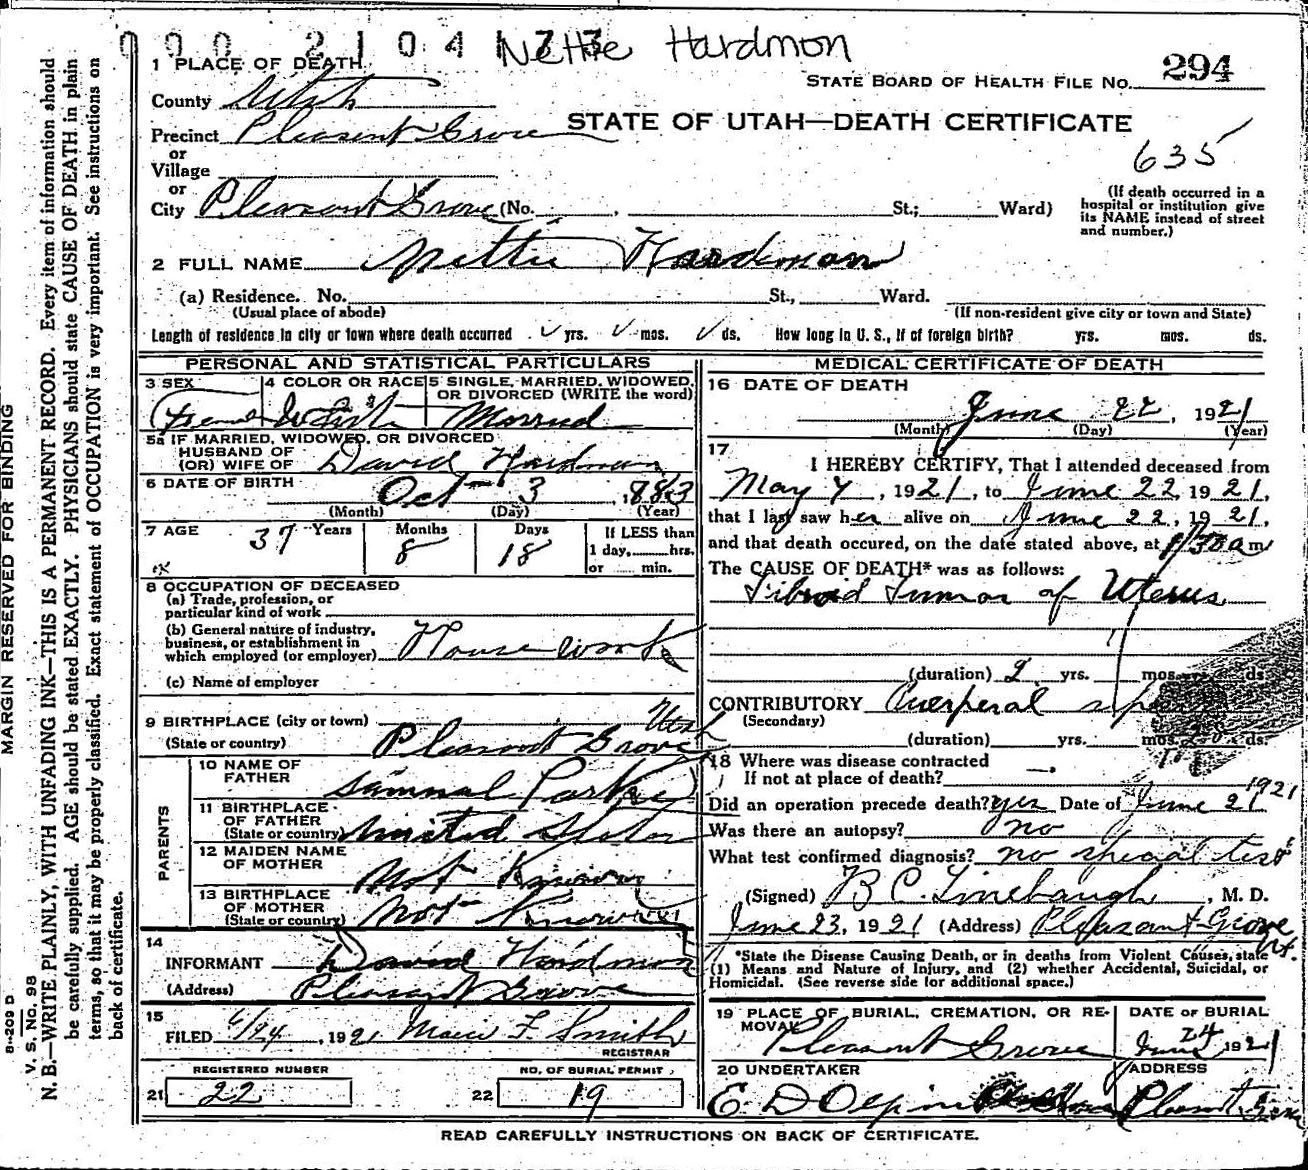 000 21041 73 Nettie Hardmon
1 PLACE OF DEATH
STATE BOARD OF HEALTH FILE No. 294
County Utah
Precinct Pleasant Grove
STATE OF UTAH—DEATH CERTIFICATE
635
or
Village
or
City Pleasant Grove (No. , St.; Ward)
(If death occurred in a
hospital or institution give
its NAME instead of street
and number.)
2 FULL NAME Nettie Hardman
(a) Residence. No. St., Ward.
(Usual place of abode)
(If non-resident give city or town and State)
Length of residence in city or town where death occurred yrs. mos. ds. How long in U. S., if of foreign birth? yrs. mos. ds.
PERSONAL AND STATISTICAL PARTICULARS
3 SEX
4 COLOR OR RACE
5 SINGLE, MARRIED, WIDOWED,
OR DIVORCED (WRITE the word)
Female White Married
5a IF MARRIED, WIDOWED, OR DIVORCED
HUSBAND OF
(OR) WIFE OF David Hardman
6 DATE OF BIRTH Oct 3 1883
(Month) (Day) (Year)
7 AGE 37 Years Months 8 Days 18
If LESS than
1 day, hrs.
or min.
8 OCCUPATION OF DECEASED
(a) Trade, profession, or
particular kind of work
(b) General nature of industry,
business, or establishment in
which employed (or employer) Housework
(c) Name of employer
9 BIRTHPLACE (city or town) Utah
(State or country) Pleasant Grove
PARENTS
10 NAME OF
FATHER Samual
11 BIRTHPLACE
OF FATHER
(State or country) United States
12 MAIDEN NAME
OF MOTHER Not Known
13 BIRTHPLACE
OF MOTHER
(State or country) Not Known
14
INFORMANT David Hardman
(Address) Pleasant Grove
15
FILED 6/24, 1921 F. Smith
REGISTRAR
REGISTERED NUMBER
21 22
NO. OF BURIAL PERMIT
22 19
MEDICAL CERTIFICATE OF DEATH
16 DATE OF DEATH
June 22, 1921
(Month) (Day) (Year)
17
I HEREBY CERTIFY, That I attended deceased from
May 7, 1921, to June 22, 1921,
that I last saw her alive on June 22, 1921,
and that death occured, on the date stated above, at 30 a m
The CAUSE OF DEATH* was as follows:
Fibroid Tumor of Uterus
(duration) 2 yrs. mos. ds.
CONTRIBUTORY Puerperal
(Secondary)
(duration) yrs. mos. ds.
18 Where was disease contracted
If not at place of death?
Did an operation precede death? yes Date of June 21 1921
Was there an autopsy? no
What test confirmed diagnosis? no special test
(Signed) B C Linebaugh, M. D.
June 23, 1921 (Address) Pleasant Grove Ut.
*State the Disease Causing Death, or in deaths from Violent Causes, state
(1) Means and Nature of Injury, and (2) whether Accidental, Suicidal, or
Homicidal. (See reverse side for additional space.)
19 PLACE OF BURIAL, CREMATION, OR RE-
MOVAL Pleasant Grove
DATE OF BURIAL
June 24 1921
20 UNDERTAKER
E D Olpin
ADDRESS
Pleasant Grove
READ CAREFULLY INSTRUCTIONS ON BACK OF CERTIFICATE.
MARGIN RESERVED FOR BINDING
8-209 D
V. S. No. 98
N. B.—WRITE PLAINLY, WITH UNFADING INK—THIS IS A PERMANENT RECORD. Every item of information should
be carefully supplied. AGE should be stated EXACTLY. PHYSICIANS should state CAUSE OF DEATH in plain
terms, so that it may be properly classified. Exact statement of OCCUPATION is very important. See instructions on
back of certificate.